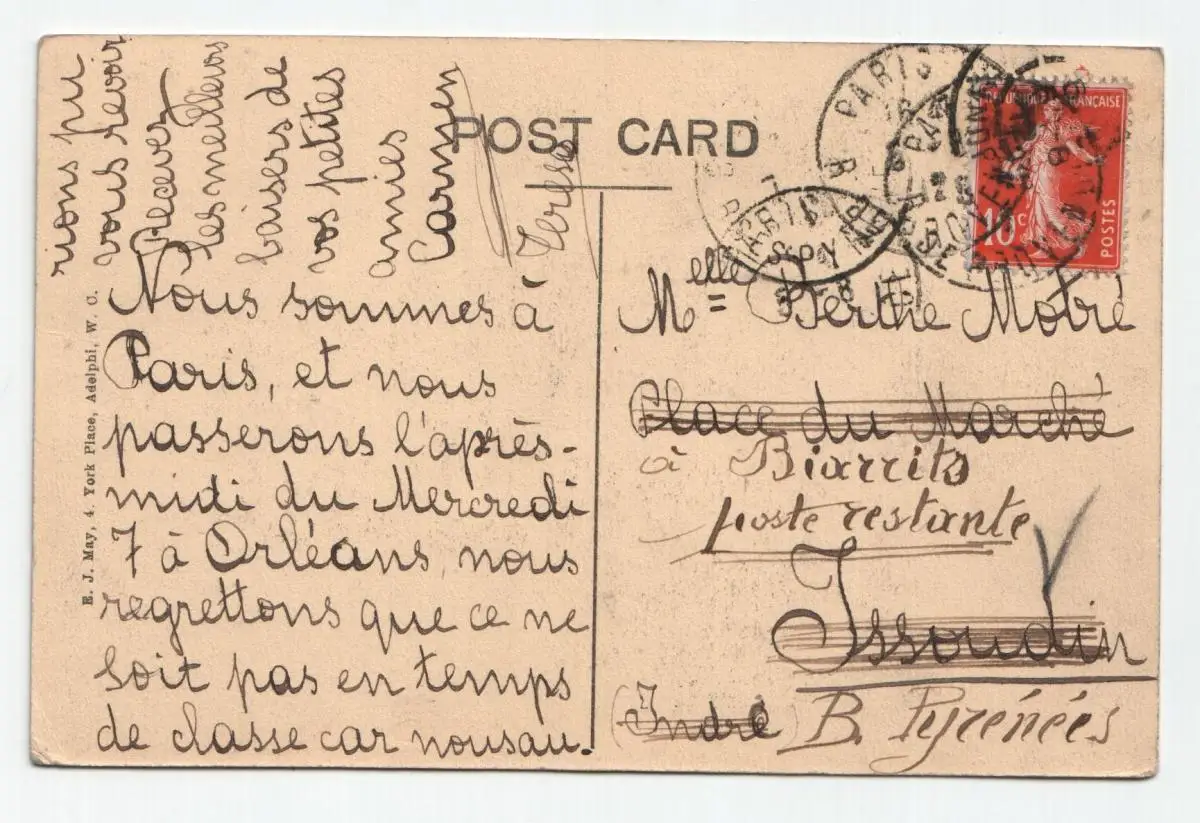 POST CARD
Nous sommes à
Paris, et nous
passerons l'après-
midi du Mercredi
7 à Orléans, nous
regrettons que ce ne
soit pas en temps
de classe car nousau.
rions pu
vous revoir
Recevez
les meilleurs
baisers de
vos petites
amies
Carmen
Teresa
E. J. May, 4, York Place, Adelphi, W. C.
Melle = Berthe Motré
Place du Marché
à Biarrits
poste restante
Issoudin
(Indre) B. Pyrénées
FRANÇAISE
10c
POSTES
PARIS
PARIS